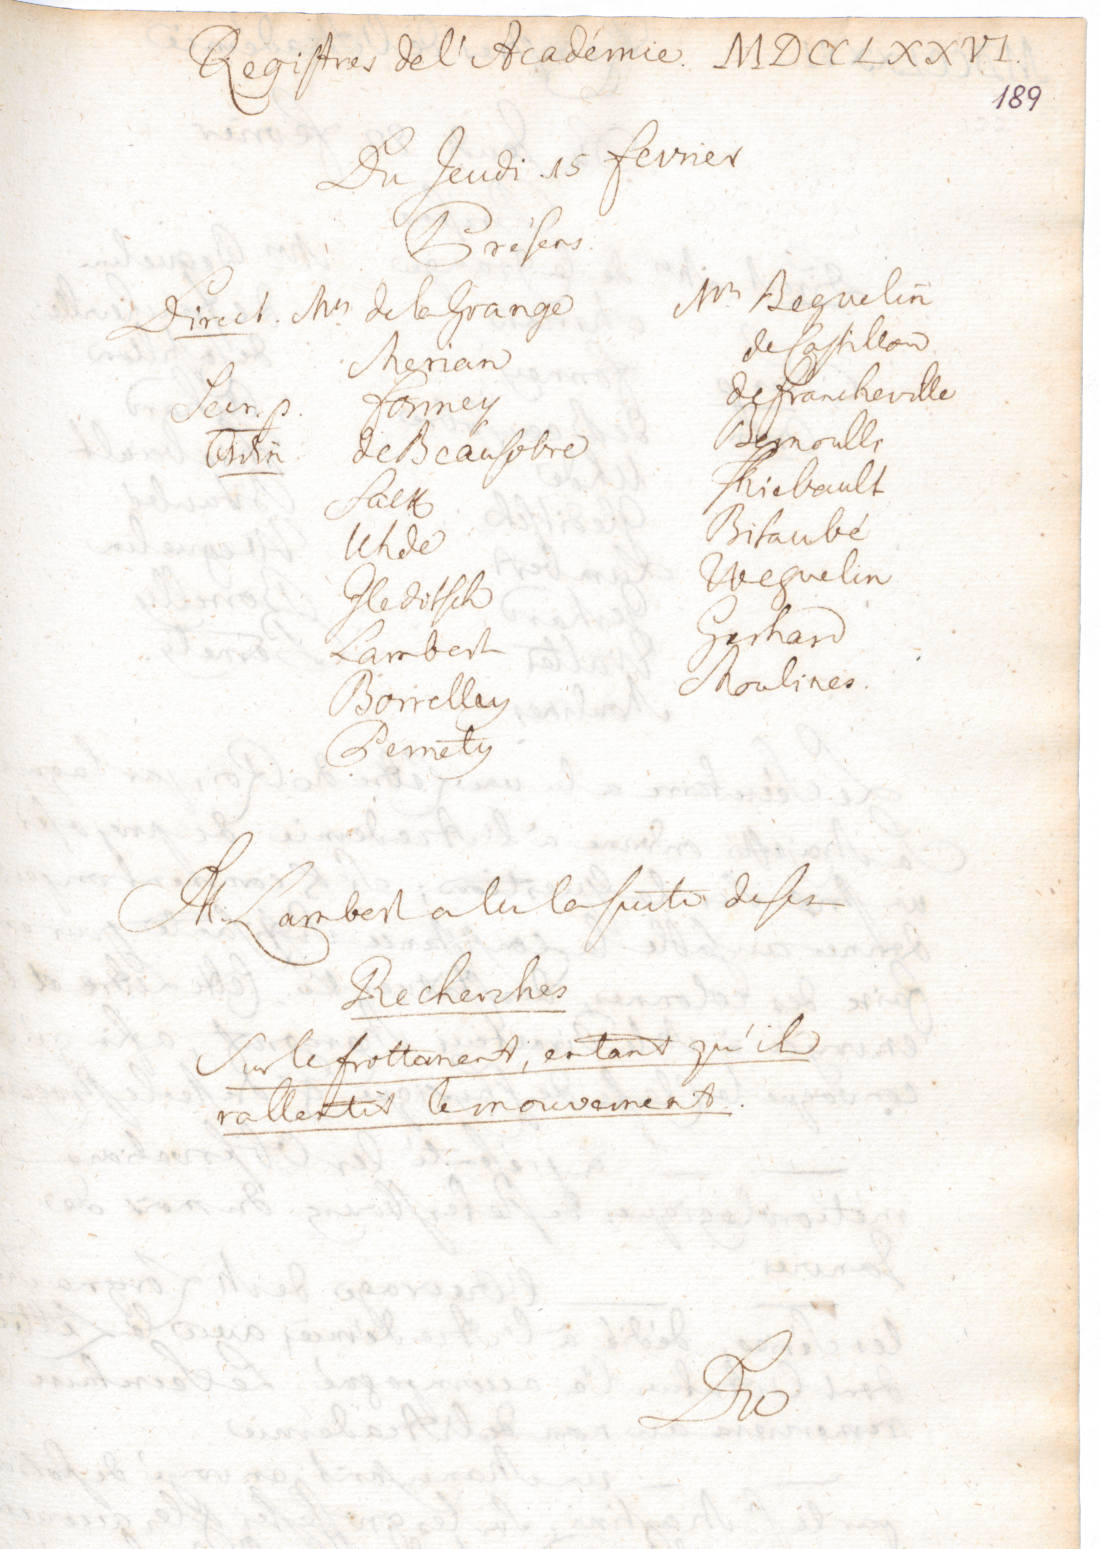 Registres de l'Académie. MDCCLXXVI.
189
Du Jeudi 15 fevrier
Présens.
Direct. Mrs de la Grange
Merian
Secr. p. Formey
Ordin de Beausobre
Sack
Uhde
Gleditsch
Lambert
Borrelley
Pernety
Mrs Beguelin
de Castillon
de francheville
Bernoulli
Thiebault
Bitaubé
Weguelin
Gerhard
Moulines.
M. Lambert a lu la suite de ses
Recherches
Sur le frottement, entant qu'il
rallentit le mouvement.
Du